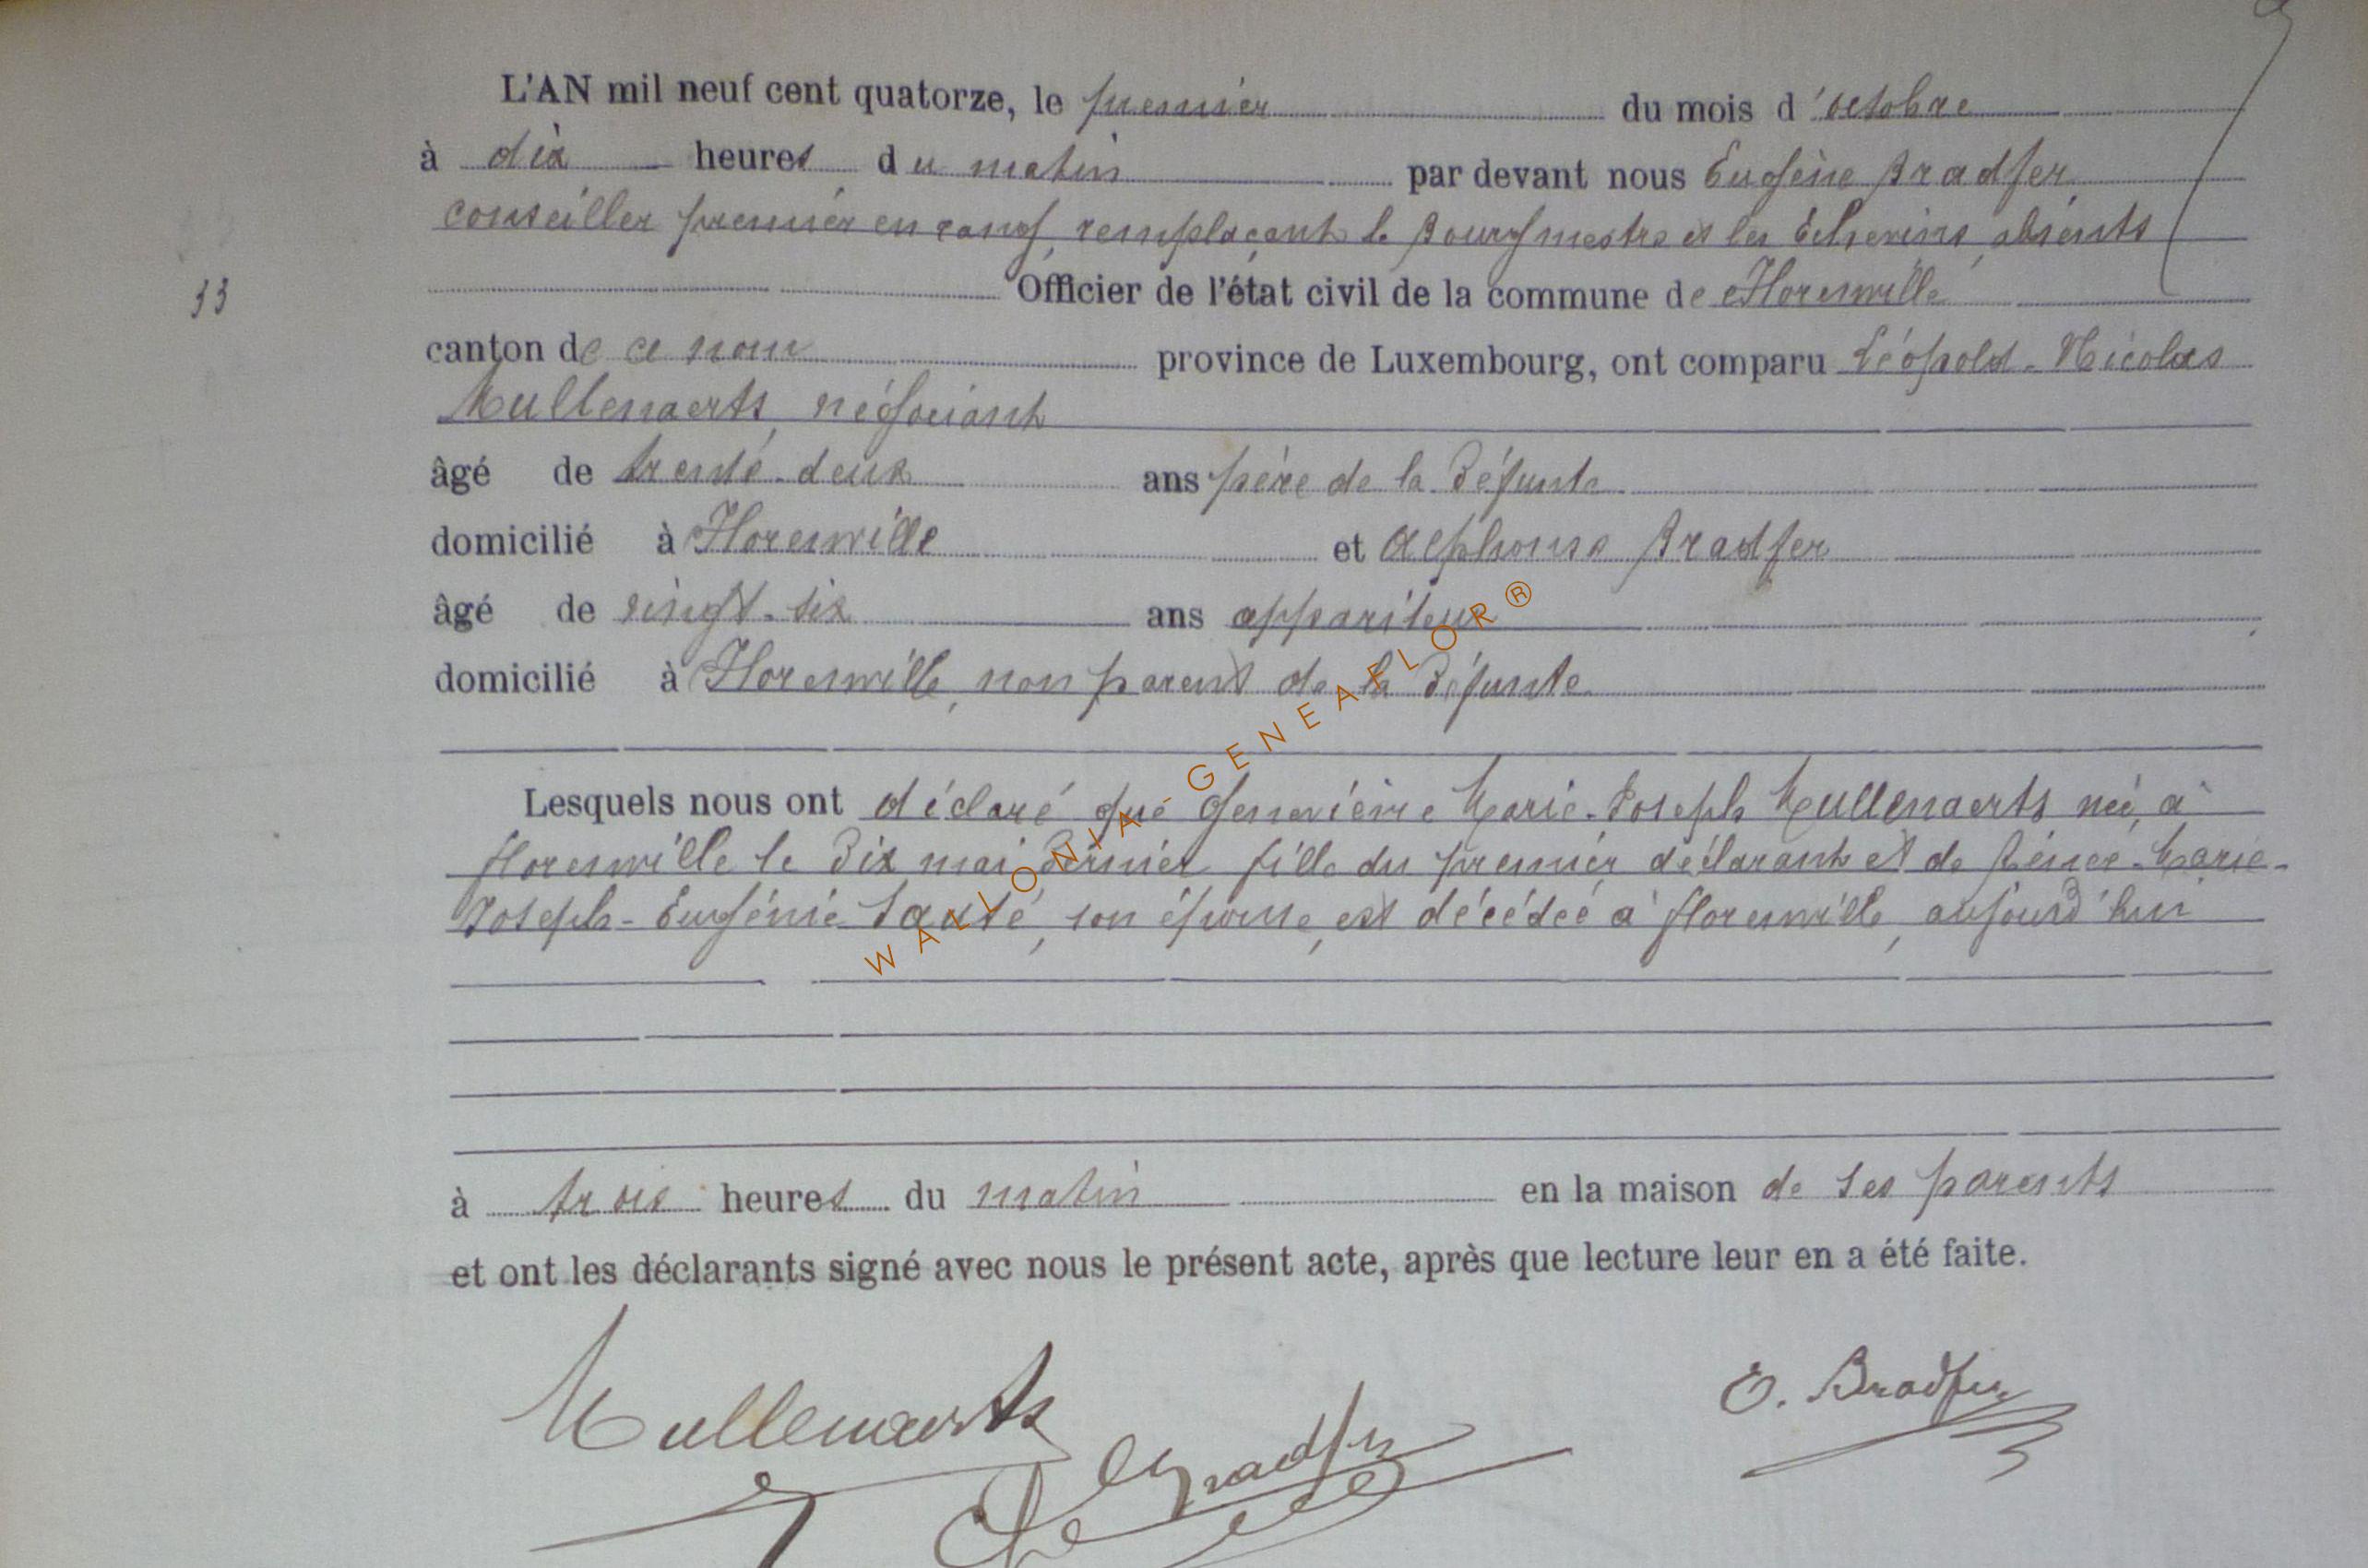 L'AN mil neuf cent quatorze, le premier du mois d'octobre
à dix heures du matin par devant nous Eugène Bradfer
conseiller premier en rang, remplaçant le Bourgmestre et les Echevins, absents
33 Officier de l'état civil de la commune de Florenville
canton de ce nom province de Luxembourg, ont comparu Léopold-Nicolas
Mullenaerts, négociant
âgé de trente-deux ans père de la Défunte
domicilié à Florenville et Alphonse Bradfer
âgé de vingt-six ans appariteur
domicilié à Florenville, non parent de la Défunte
Lesquels nous ont déclaré que Geneviève Marie-Joseph Mullenaerts née, à
Florenville le Dix mai Dernier fille du premier déclarant et de Marie-
Joseph-Eugénie son épouse, est décédée à Florenville, aujourd'hui
à trois heures du matin en la maison de ses parents
et ont les déclarants signé avec nous le présent acte, après que lecture leur en a été faite.
Mullenaerts
E. Bradfer
Bradfer
WALLONIA-GENEAFLOR®